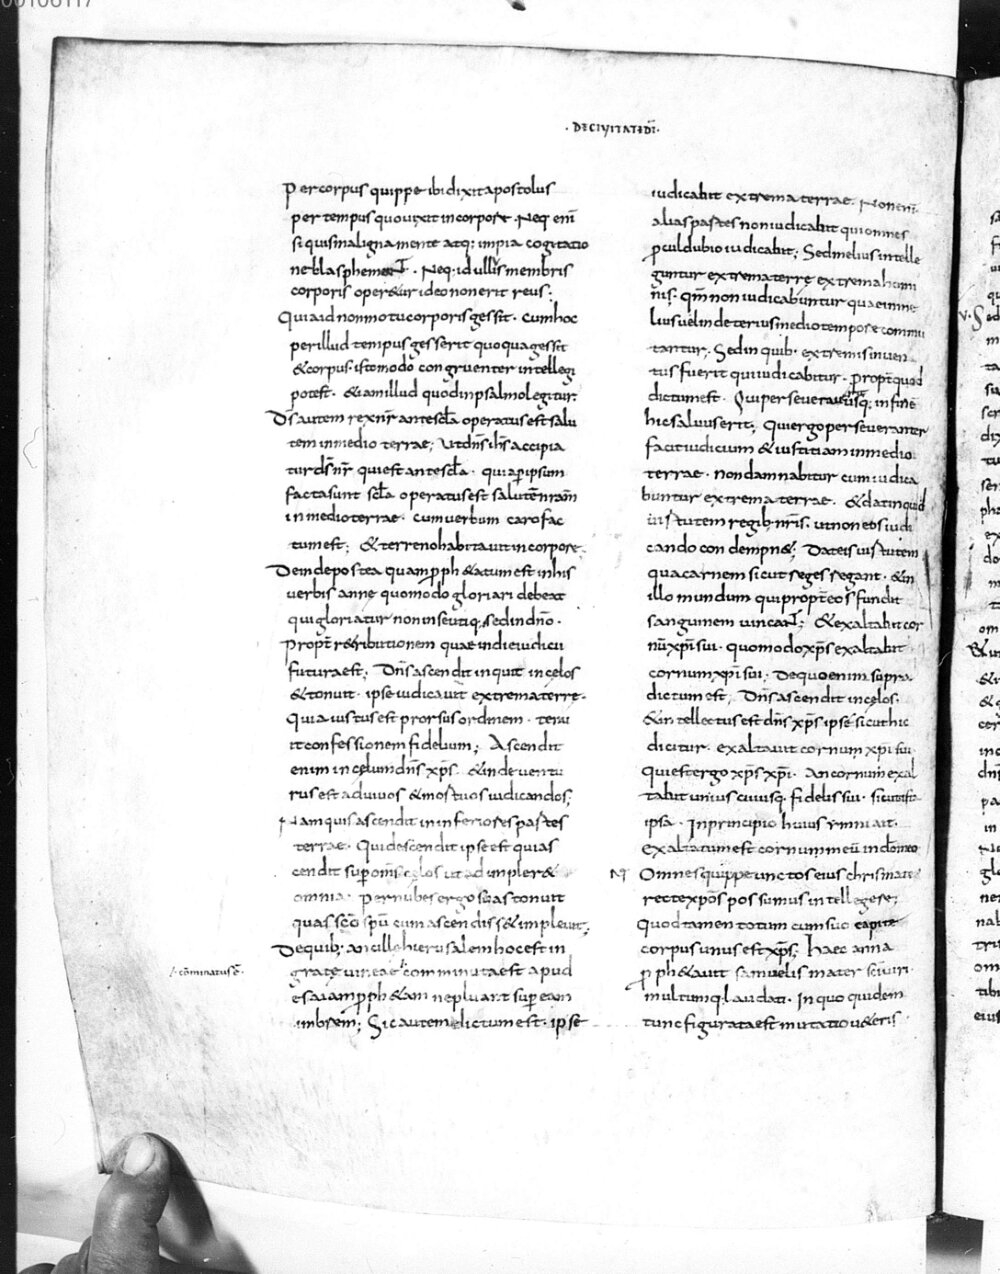 00106117
·DECIVITATEDĪ·
Per corpus quippe ibi dixit apostolus
per tempus quo uixit in corpore. Neq enī
si quis maligna mente atq; impia cogitatio
ne blasphemet. Neq; id ullis membris
corporis operetur ideo non erit reus;
Quia id non motu corporis gessit. cum hoc
per illud tempus gesserit quo qua gessit
& corpus. isto modo congruenter intellegi
potest. & iam illud quod in psalmo legitur.
Dr̄s autem rex nr̄ ante scl̄a operatus est salu
tem in medio terrae; Ut dn̄s ih̄s accipia
tur dr̄s nr̄ qui est ante scl̄a. quia p ipsum
facta sunt scl̄a operatus est salutē nram
in medio terrae. cum uerbum caro fac
tum est; & terreno habitauit in corpore.
Deinde postea quam pph&atum est in his
uerbis anne quomodo gloriari debeat
qui gloriatur non in se utiq; sed in dn̄o.
Propt̄ r&ributionem quae in die iudicii
futura est; Dn̄s ascendit inquit in celos
& tonuit. ipse iudicauit extrema terre.
Quia iustus est prorsus ordinem. tenu
it confessionem fidelium; Ascendit
enim in celum dn̄s xp̄s. & inde ventu
rus est ad uiuos & mortuos iudicandos;
Nam quis ascendit in inferiores partes
terrae. Qui descendit ipse est qui as
cendit sup omīs celos ut adimpler&
omnia. per nubes ergo suas tonuit
quas scō spū cum ascendiss& impleuit;
De quib; ancilla hierusalem hoc est in
gratę uineae comminuta est apud
·/· cōminatus ē·
esaiam pph&am ne pluant sup eam
imbrem; Sic autem dictum est. ipse
iudicabit extrema terrae. Non enī
alias partes non iudicabit qui omnes
proculdubio iudicabit; Sed melius intelle
guntur extrema terrę extrema homi
nis. qm̄ non iudicabuntur quae in me
lius uel in deterius medio tempore commu
tantur. Sed in quib. extremis inuen
tus fuerit qui iudicabitur. propt̄ quod
dictum est. Qui perseverauerit usq; in finē
hic saluus erit; Qui ergo perseueranter
facit iudicium & iustitiam in medio
terrae. non damnabitur cum iudica
buntur extrema terrae. & dat inquid
uirtutem regib; nr̄is. ut non eos iudi
cando condempn&; Dat eis uirtutem
qua carnem sicut reges regant. & in
illo mundum qui propt̄ eos fundit
sanguinem uincant; & exaltabit cor
nū xp̄i sui. quomodo xp̄s exaltabit
cornum xp̄i sui; De quo enim supra
dictum est; Dn̄s ascendit in celos.
& intellectus est dn̄s xp̄s ipse sicut hic
dicitur. exaltauit cornum xp̄i sui
Qui est ergo xp̄s xp̄i. An cornum exal
tabit unius cuiusq. fidelis sui. sicut ista
ipsa. In principio huius ymni ait.
exaltatum est cornum meū in dō meo
Omnes quippe unctos eius chrismate
recte xp̄os possumus intellegere;
Quod tamen totum cum suo capite
corpus unus est xp̄s; Haec anna
pph&auit samuelis mater sc̄i uiri
multumq. laudati. In quo quidem
tunc figurata est mutatio u&eris